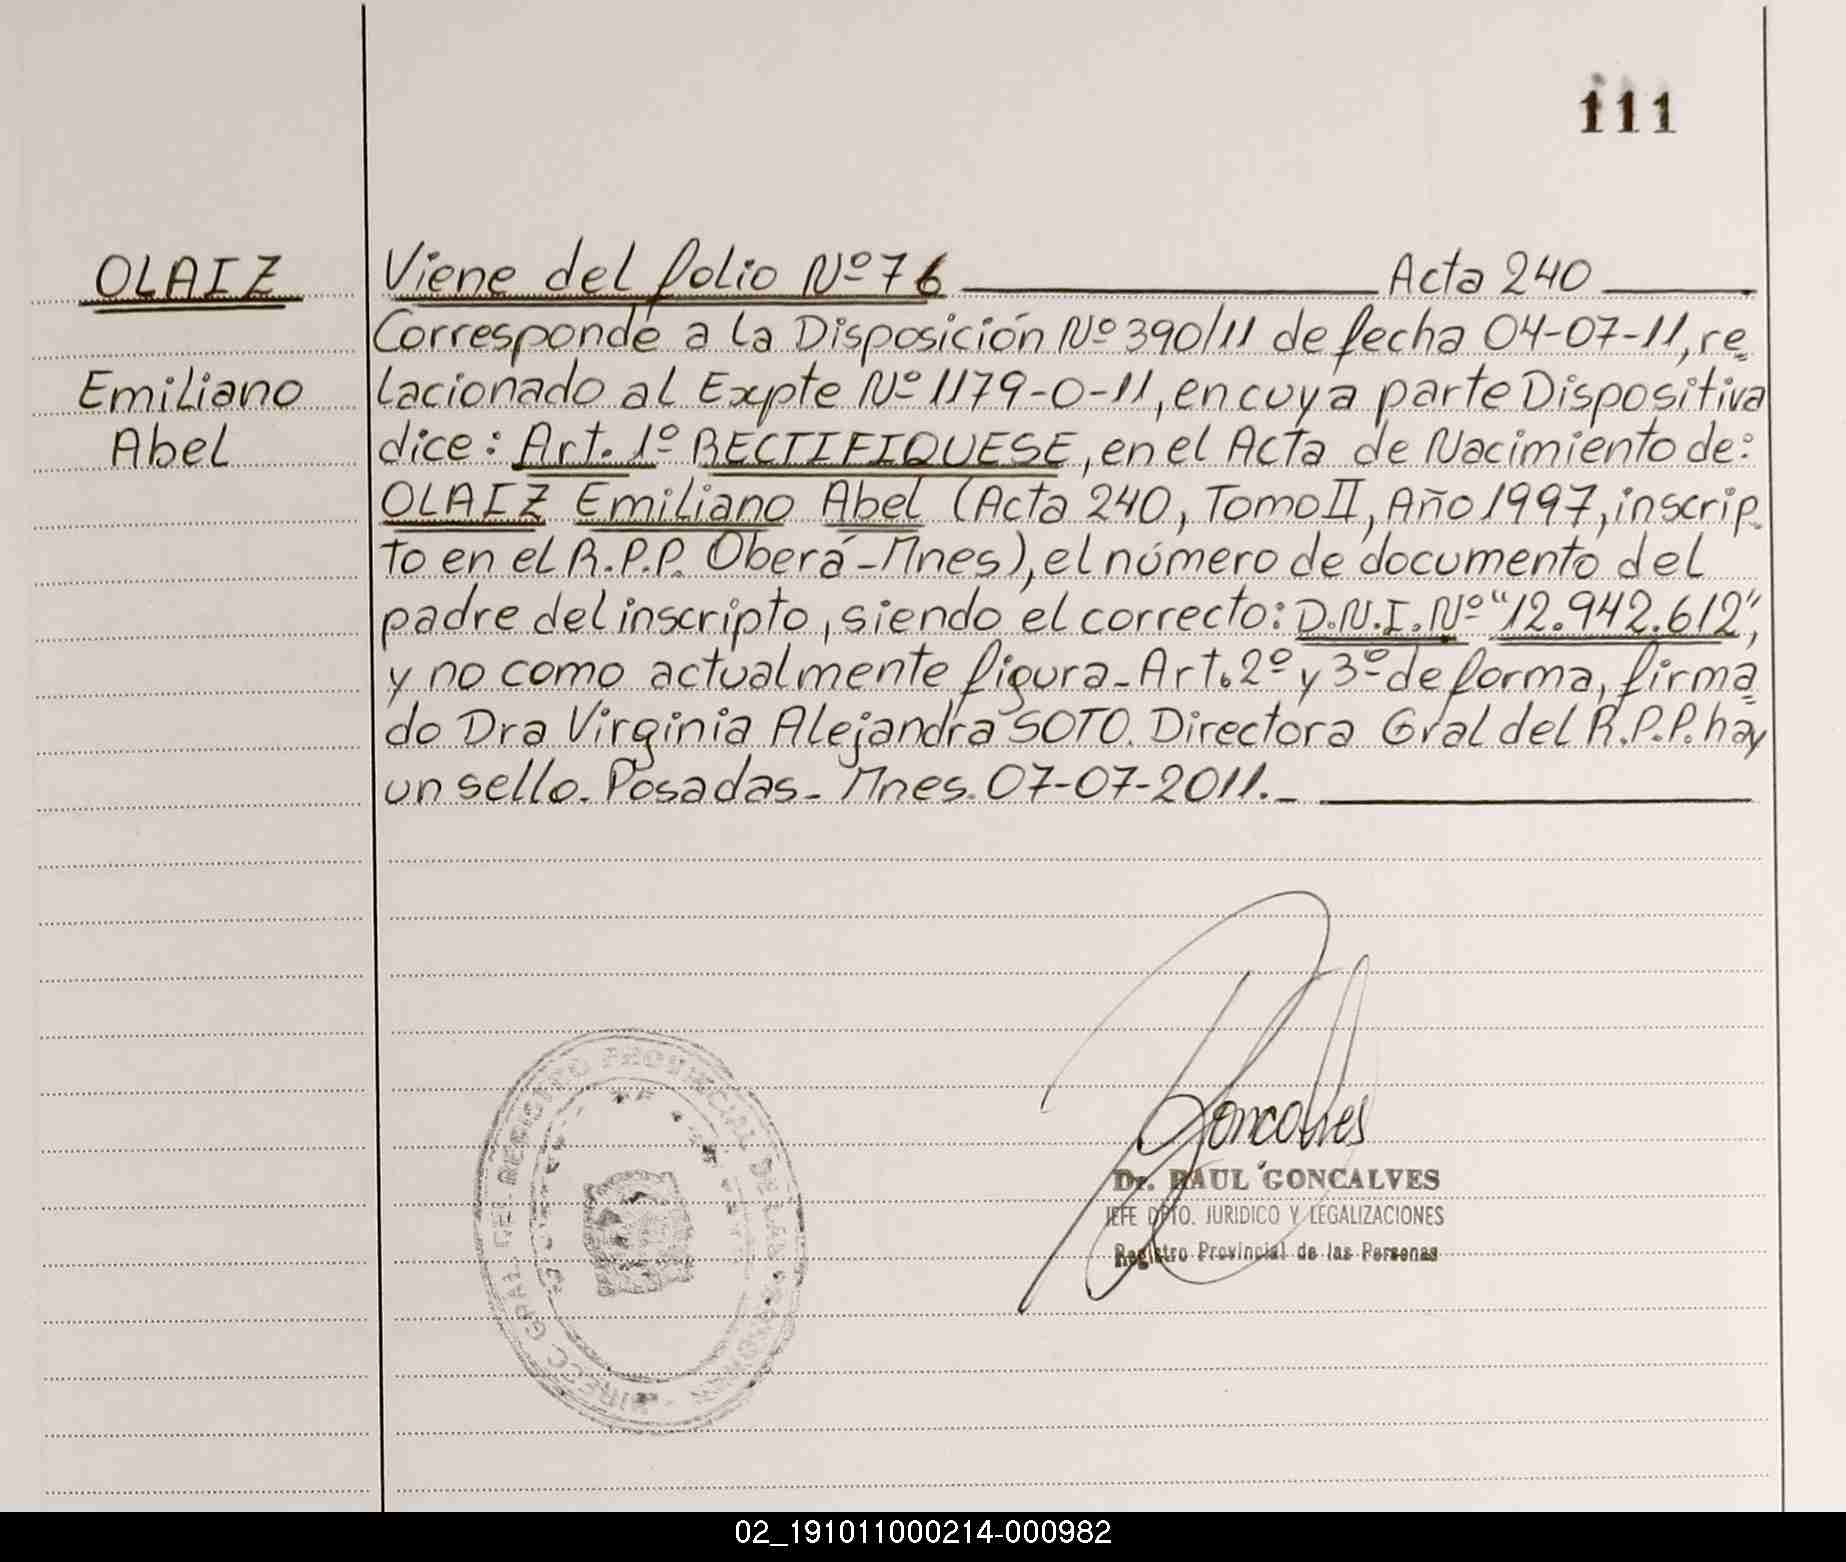 111
OLAIZ
Emiliano
Abel
Viene del folio Nº 76 Acta 240
Corresponde a la Disposición Nº 390/11 de fecha 04-07-11, re
lacionado al Expte Nº 1179-0-11, en cuya parte Dispositiva
dice: Art. 1º RECTIFIQUESE, en el Acta de Nacimiento de:
OLAIZ Emiliano Abel (Acta 240, Tomo II, Año 1997, inscrip
to en el R.P.P. Oberá-Mnes), el número de documento del
padre del inscripto, siendo el correcto: D.N.I. Nº "12.942.612",
y no como actualmente figura - Art. 2º y 3º de forma, firma
do Dra Virginia Alejandra SOTO. Directora Gral del R.P.P. hay
un sello. Posadas - Mnes. 07-07-2011.-
DIRECC. GRAL. DEL REGISTRO PROVINCIAL DE LAS PERSONAS
Goncalves
Dr. RAUL GONCALVES
JEFE DPTO. JURIDICO Y LEGALIZACIONES
Registro Provincial de las Personas
02_191011000214-000982